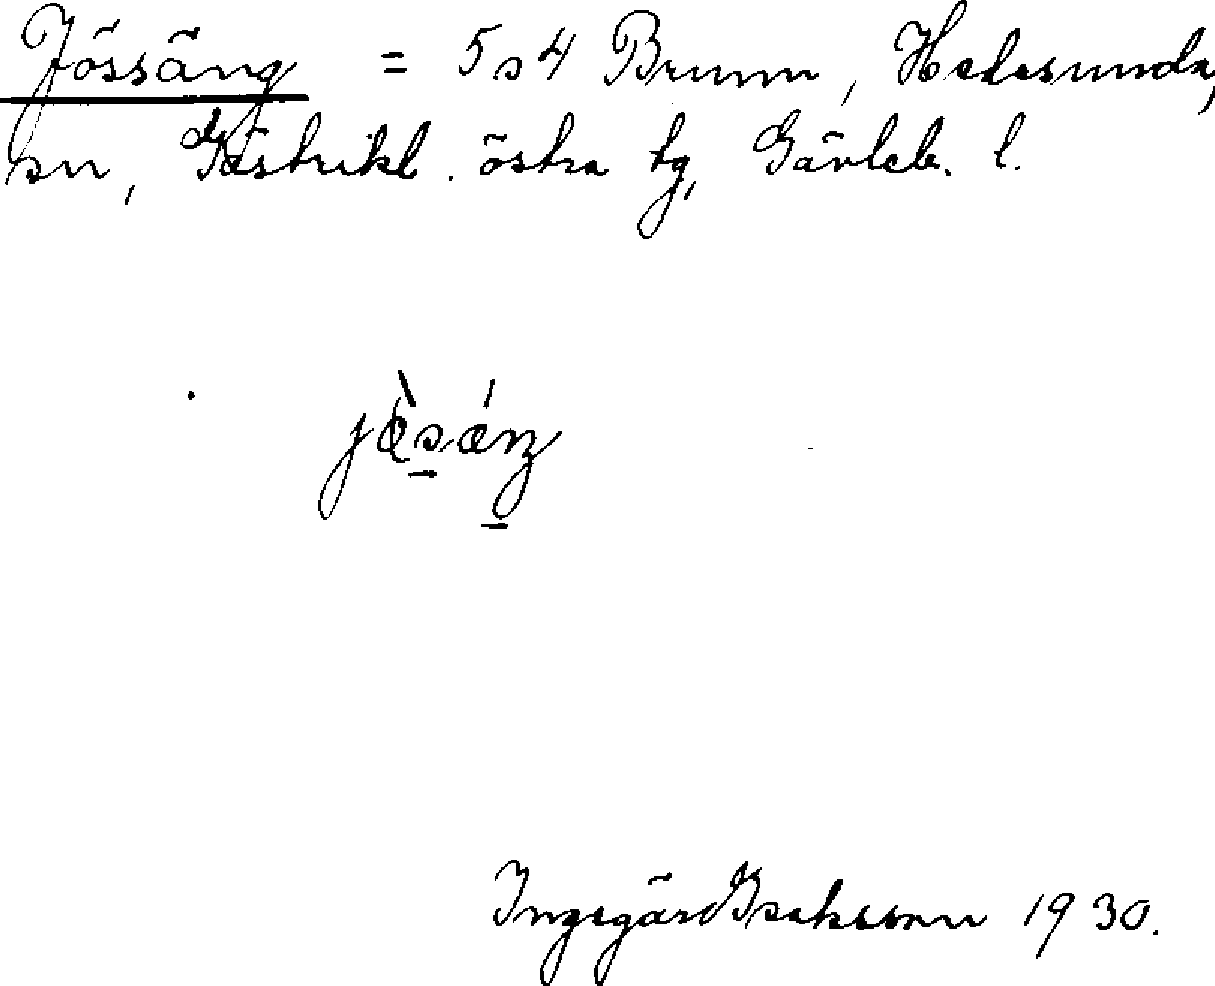 Jössäng = 5s4 Brunn, Hedesunda,
sn, Gästrikl. östra tg, Gävleb. l.
Ingegärd Isaksson 1930.